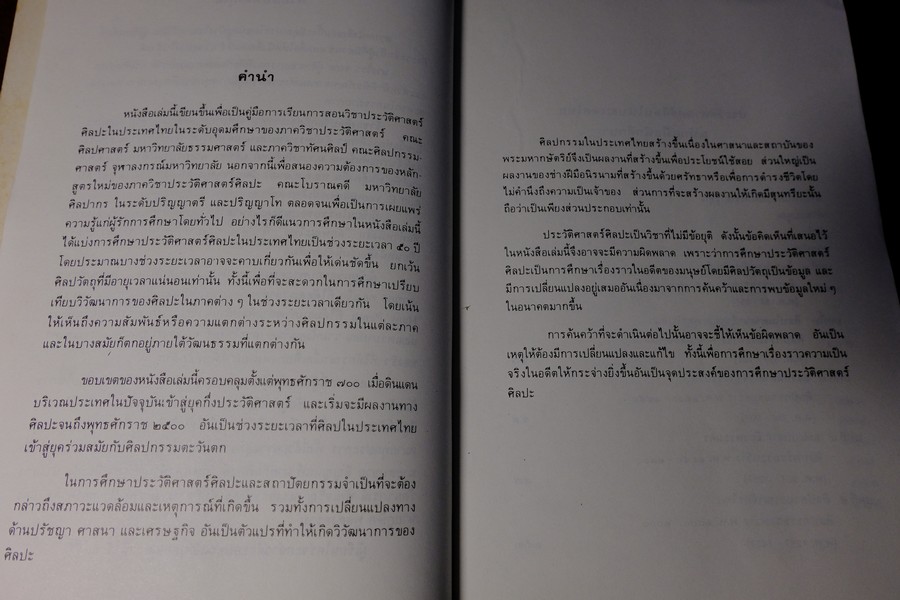 คำนำ
หนังสือเล่มนี้เขียนขึ้นเพื่อเป็นคู่มือการเรียนการสอนวิชาประวัติศาสตร์
ศิลปะในประเทศไทยในระดับอุดมศึกษาของภาควิชาประวัติศาสตร์ คณะ
ศิลปศาสตร์ มหาวิทยาลัยธรรมศาสตร์ และภาควิชาทัศนศิลป์ คณะศิลปกรรม-
ศาสตร์ จุฬาลงกรณ์มหาวิทยาลัย นอกจากนี้เพื่อสนองความต้องการของหลัก-
สูตรใหม่ของภาควิชาประวัติศาสตร์ศิลปะ คณะโบราณคดี มหาวิทยาลัย
ศิลปากร ในระดับปริญญาตรี และปริญญาโท ตลอดจนเพื่อเป็นการเผยแพร่
ความรู้แก่ผู้รักการศึกษาโดยทั่วไป อย่างไรก็ดีแนวการศึกษาในหนังสือเล่มนี้
ได้แบ่งการศึกษาประวัติศาสตร์ศิลปะในประเทศไทยเป็นช่วงระยะเวลา ๕๐ ปี
โดยประมาณบางช่วงระยะเวลาอาจจะคาบเกี่ยวกันเพื่อให้เด่นชัดขึ้น ยกเว้น
ศิลปวัตถุที่มีอายุเวลาแน่นอนเท่านั้น ทั้งนี้เพื่อที่จะสะดวกในการศึกษาเปรียบ
เทียบวิวัฒนาการของศิลปะในภาคต่าง ๆ ในช่วงระยะเวลาเดียวกัน โดยเน้น
ให้เห็นถึงความสัมพันธ์หรือความแตกต่างระหว่างศิลปกรรมในแต่ละภาค
และในบางสมัยก็ตกอยู่ภายใต้วัฒนธรรมที่แตกต่างกัน
ขอบเขตของหนังสือเล่มนี้ครอบคลุมตั้งแต่พุทธศักราช ๗๐๐ เมื่อดินแดน
บริเวณประเทศในปัจจุบันเข้าสู่ยุคกึ่งประวัติศาสตร์ และเริ่มจะมีผลงานทาง
ศิลปะจนถึงพุทธศักราช ๒๕๐๐ อันเป็นช่วงระยะเวลาที่ศิลปในประเทศไทย
เข้าสู่ยุคร่วมสมัยกับศิลปกรรมตะวันตก
ในการศึกษาประวัติศาสตร์ศิลปะและสถาปัตยกรรมจำเป็นที่จะต้อง
กล่าวถึงสภาวะแวดล้อมและเหตุการณ์ที่เกิดขึ้น รวมทั้งการเปลี่ยนแปลงทาง
ด้านปรัชญา ศาสนา และเศรษฐกิจ อันเป็นตัวแปรที่ทำให้เกิดวิวัฒนาการของ
ศิลปะ
ศิลปกรรมในประเทศไทยสร้างขึ้นเนื่องในศาสนาและสถาบันของ
พระมหากษัตริย์จึงเป็นผลงานที่สร้างขึ้นเพื่อประโยชน์ใช้สอย ส่วนใหญ่เป็น
ผลงานของช่างฝีมือนิรนามที่สร้างขึ้นด้วยศรัทธาหรือเพื่อการดำรงชีวิตโดย
ไม่คำนึงถึงความเป็นเจ้าของ ส่วนการที่จะสร้างผลงานให้เกิดมีสุนทรียะนั้น
ถือว่าเป็นเพียงส่วนประกอบเท่านั้น
ประวัติศาสตร์ศิลปะเป็นวิชาที่ไม่มีข้อยุติ ดังนั้นข้อคิดเห็นที่เสนอไว้
ในหนังสือเล่มนี้จึงอาจจะมีความผิดพลาด เพราะว่าการศึกษาประวัติศาสตร์
ศิลปะเป็นการศึกษาเรื่องราวในอดีตของมนุษย์โดยมีศิลปวัตถุเป็นข้อมูล และ
มีการเปลี่ยนแปลงอยู่เสมออันเนื่องมาจากการค้นคว้าและการพบข้อมูลใหม่ ๆ
ในอนาคตมากขึ้น
การค้นคว้าที่จะดำเนินต่อไปนั้นอาจจะชี้ให้เห็นข้อผิดพลาด อันเป็น
เหตุให้ต้องมีการเปลี่ยนแปลงและแก้ไข ทั้งนี้เพื่อการศึกษาเรื่องราวความเป็น
จริงในอดีตให้กระจ่างยิ่งขึ้นอันเป็นจุดประสงค์ของการศึกษาประวัติศาสตร์
ศิลปะ